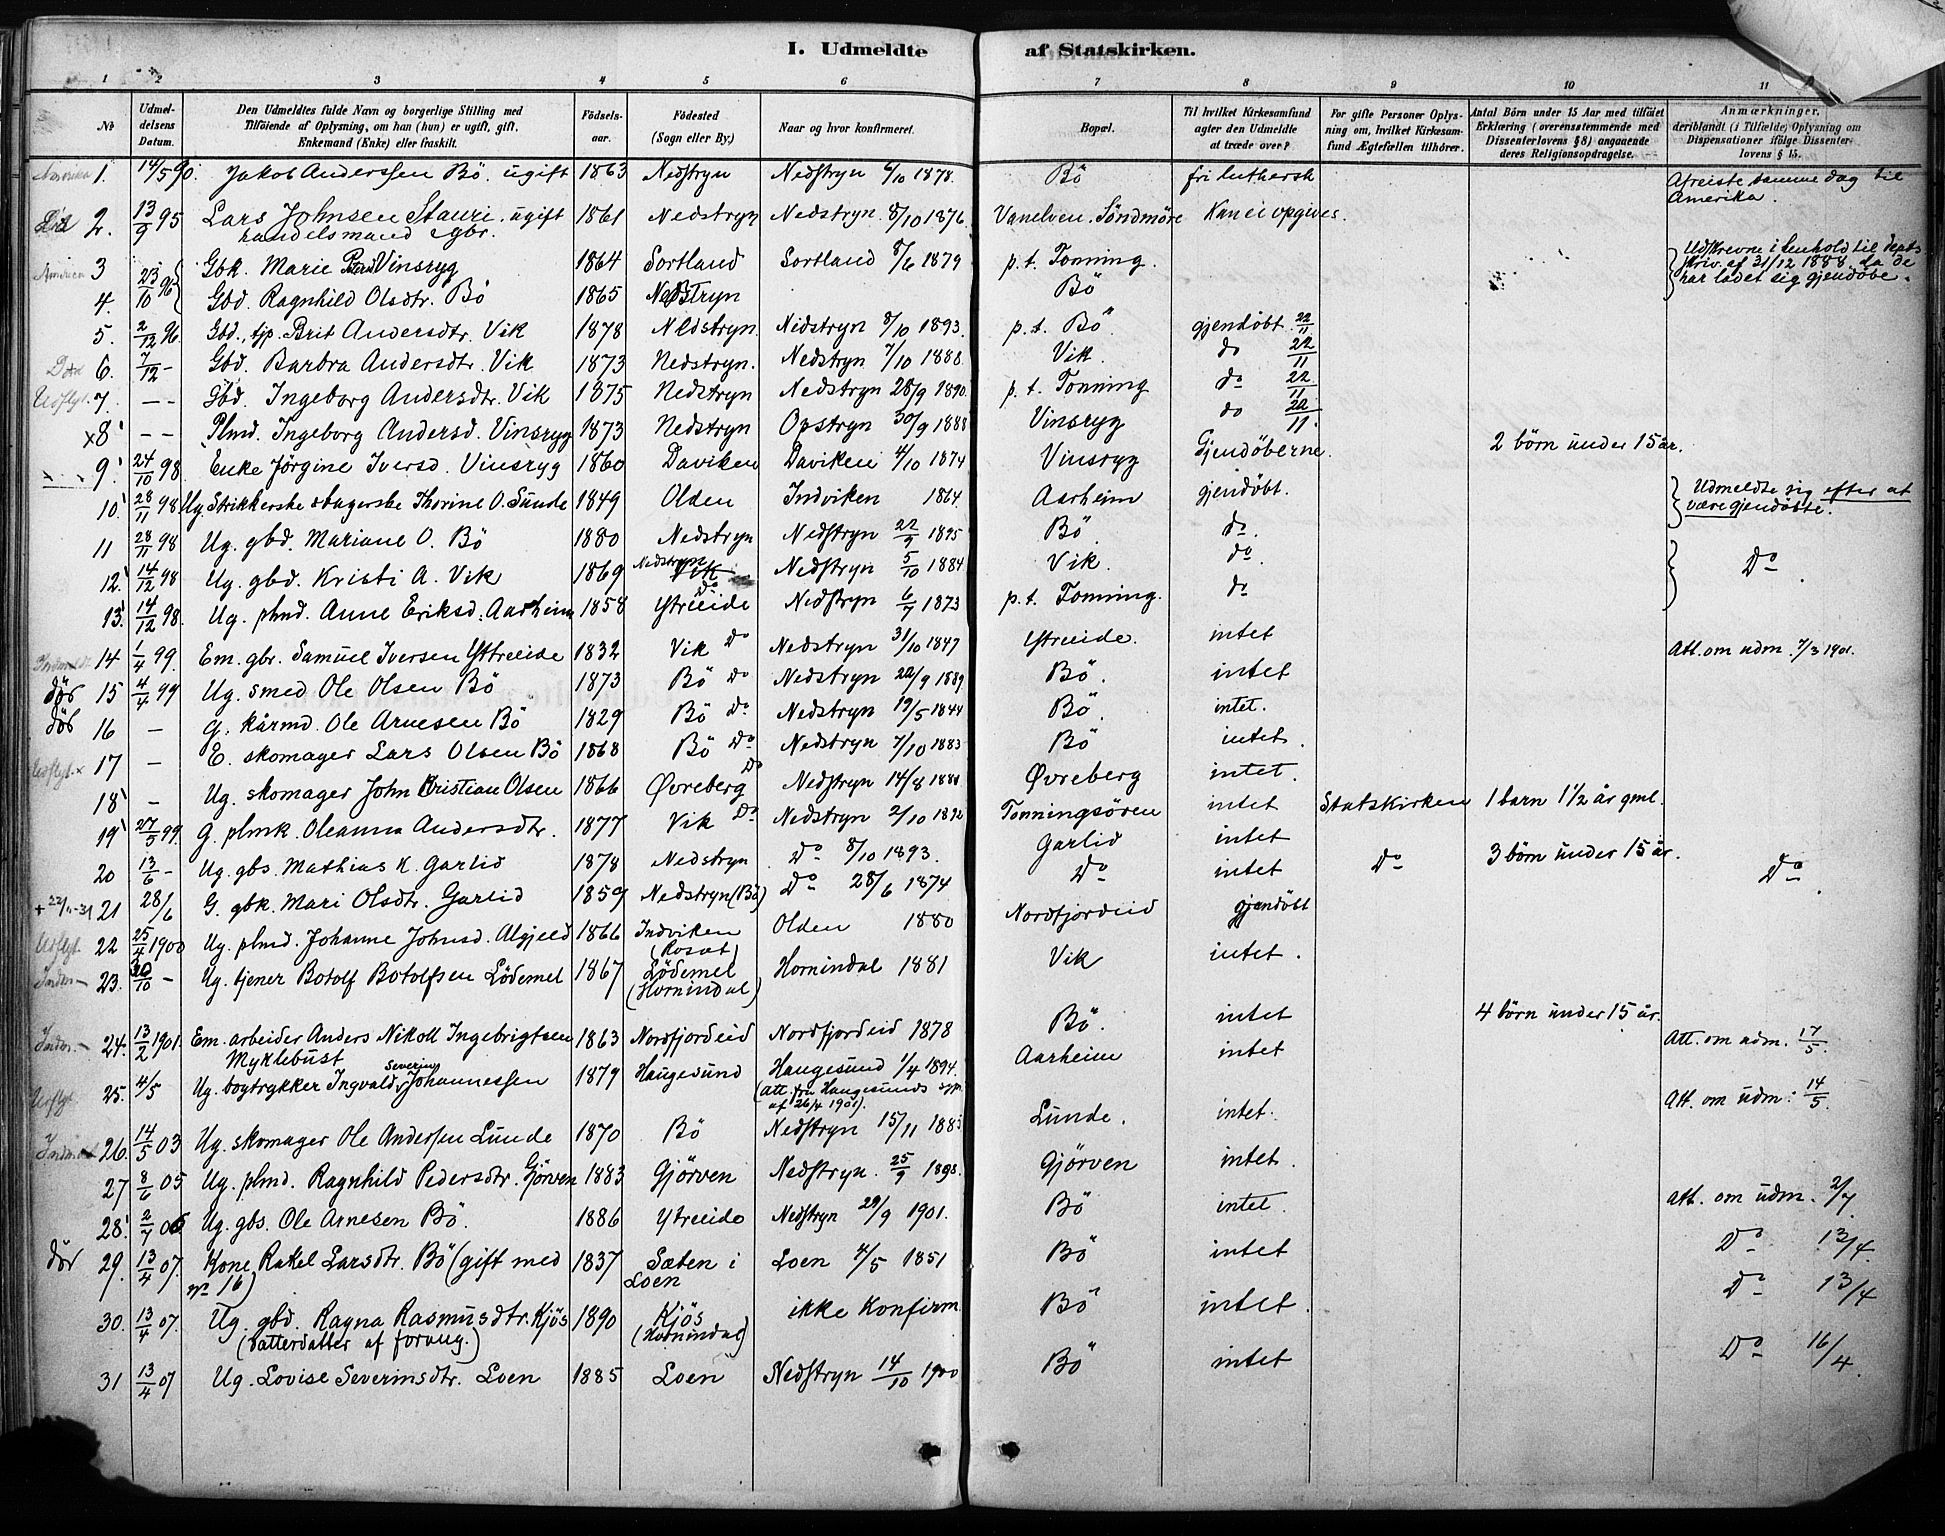 I. Udmeldte af Statskirken.
1 2 3 4 5 6 7 8 9 10 11
No
Udmeldelsens Datum.
Den Udmeldtes fulde Navn og borgerlige Stilling med
Tilføiende af Oplysning, om han (hun) er ugift, gift,
Enkemand (Enke) eller fraskilt.
Fødselsaar.
Fødested
(Sogn eller By.)
Naar og hvor konfirmeret.
Bopæl.
Til hvilket Kirkesamfund
agter den Udmeldte
at træde over?
For gifte Personer Oplys-
ning om, hvilket Kirkesam-
fund Ægtefællen tilhører.
Antal Børn under 15 Aar med tilføiet
Erklæring (overensstemmende med
Dissenterlovens § 8) angaaende
deres Religionsopdragelse.
Anmærkninger,
deriblandt (i Tilfælde) Oplysning om
Dispensationer ifølge Dissenter-
lovens § 15.
Amerika 1. 14/5 90. Jakob Anderssen Bö. ugift 1863 Nedstryn Nedstryn 6/10 1878. Bö fri luthersk Afreiste samme dag til
Amerika.
Död 2. 13/9 95 Lars Johnsen Stauri. ugift 1861 Nedstryn Nedstryn. 8/10 1876. Vanelven. Söndmöre Kan ei opgives.
handelsmand & gbr.
America 3 23/10 96 Gbk. Marie Vinsryg 1864 Sortland Sortland 8/6 1879 p.t. Tonning. Udskrevne i henhold til depts
skriv. af 31/12 1888 da de
har ladet sig gjendöbe.
4. Gbd. Ragnhild Olsdtr. Bö 1865 Nedstryn Bö
5. 2/12 96. Gbd., tjp. Brit Andersdtr. Vik 1878 Nedstryn. Nedstryn 8/10 1893. p.t. Bö. gjendöbt 22/11
Död 6. 7/12 - Gbd. Barbra Andersdtr. Vik 1873 Nedstryn. Nedstryn 7/10 1888. Vik. do 22/11
Udflyt. 7. - - Gbd. Ingeborg Andersdtr. Vik 1875 Nedstryn Nedstryn 28/9 1890. p.t. Tonning do 22/11
x8 - - Plmd. Ingeborg Andersd. Vinsryg 1873 Nedstryn Opstryn 30/9 1888 Vinsryg do 22/11.
9. 24/10 98. Enke Jörgine Iversd. Vinsryg 1860 Daviken Daviken 4/10 1874 Vinsryg Gjendöberne. 2 börn under 15 år.
10. 28/11 98 Ug. Strikkerske & bagerske Thorine O. Sunde 1849 Olden Indviken 1864. Aarheim gjendöbt. Udmeldte sig efter at
være gjendöbte.
11 28/11 98 Ug. gbd. Mariane O. Bö 1880 Nedstryn Nedstryn 22/9 1895 Bö. do.
12. 14/12 98 Ug. gbd. Kristi A. Vik 1869 Nedstryn Vik Nedstryn 5/10 1884 Vik. do Do.
13. 14/12 98. Ug. plmd. Anne Eriksd. Aarheim 1858 Ytreeide do Nedstryn 6/7 1873 p.t. Tonning. do
14 1/4 99. Em. gbr. Samuel Iversen Yttreeide 1832 Vik Do Nedstryn 31/10 1847 Ytreeide. intet Att. om udm. 7/3 1901.
död 15 4/4 99 Ug. smed Ole Olsen Bö 1873 Bö Do Nedstryn 22/9 1889 Bö. intet
död 16 - G. kårmd. Ole Arnesen Bö 1829 Bö Do Nedstryn 19/5 1844 Bö. intet.
Udflyt. x 17 - E. skomager Lars Olsen Bö 1868 Bö Do Nedstryn 7/10 1883 Bö intet.
18 - Ug. skomager John Kristian Olsen 1866 Øvreberg Do Nedstryn 14/8 1881 Øvreberg intet.
19 27/5 99. G. plmk. Oleanna Andersdtr. 1877 Vik Do Nedstryn 2/10 1892 Tonningsören intet Statskirken 1 barn 1½ år gml.
20 13/6 - Ug. gbs. Mathias K. Garlid 1878 Nedstryn Do 8/10 1893. Garlid intet
+ 22/11-31 21 28/6 G. gbk. Mari Olsdtr. Garlid 1859 Nedstryn (Bö) Do 28/6 1874 Do intet Do 3 börn under 15 år. Do.
Udflyt. 22 25/4 1900 Ug. plmd. Johanne Johnsd. Algjeld 1866 Indviken Olden 1880 Nordfjordeid gjendöbt
23. 30/10 - Ug. tjener Botolf Botolfsen Lödemel 1867 Lödemel
(Hornindal) Hornindal 1881 Vik intet.
24. 13/2 1901. Em. arbeider Anders Nikoll Ingebrigtsen 1863 Nordfjordeid Nordfjordeid 1878 Bö. intet 4 börn under 15 år. Att. om udm. 17/5.
Myklebust
Udflyt. 25. 4/5 Ug. bogtrykker Ingvald Severin Johannessen 1879 Haugesund Haugesund 1/4 1894. Aarheim intet Att. om udm: 14/5.
(Att. fra Haugesunds
af 26/4 1901).
26. 14/5 03 Ug. skomager Ole Andersen Lunde 1870 Bö Nedstryn 15/11 1885 Lunde. intet.
27 8/6 05 Ug. plmd. Ragnhild Pedersdtr. Gjörven 1883 Gjörven Nedstryn. 25/9 1898. Gjörven intet.
28. 2/7 06 Ug. gbs. Ole Arnesen Bö. 1886 Ytreeide Nedstryn 29/9 1901. Bö intet. Att. om udm. 2/7.
död 29. 13/4 07. Kone Rakel Larsdtr. Bö (gift med 1837 Sæten i
Loen Loen 4/5 1851 Bö intet Do 13/4.
no 16)
30. 13/4 07. Ug. gbd. Ragna Rasmusdtr. Kjös 1890 Kjös
(Hornindal) ikke konfirm. Bö intet. Do 13/4
(Datterdatter af forrug.)
31 13/4 07 Ug. Lovise Severinsdtr. Loen 1885 Loen Nedstryn 14/10 1900 Bö intet Do 16/4.